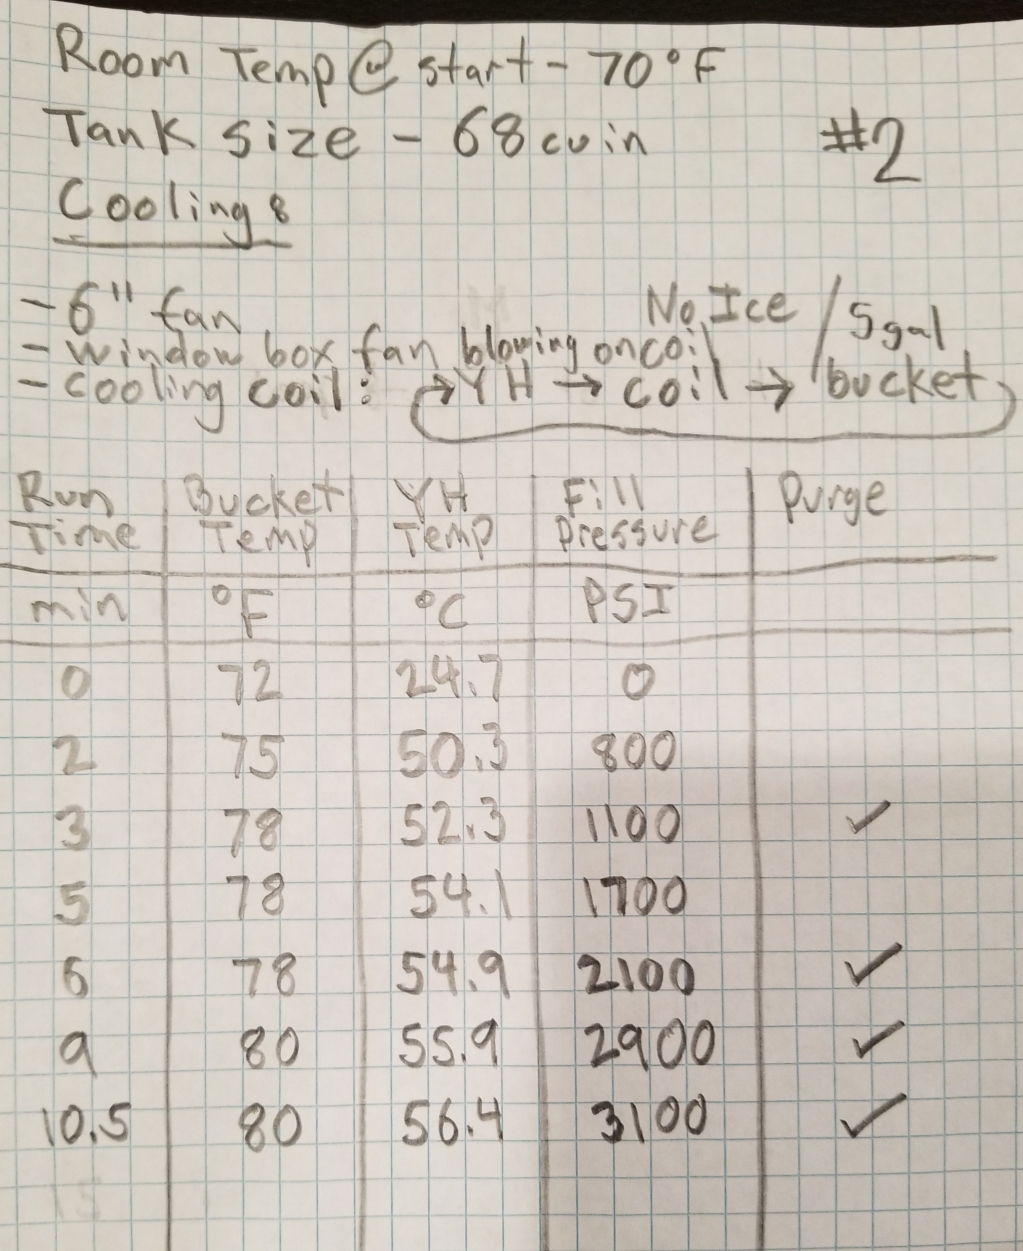 Room Temp @ start - 70°F
Tank size - 68 cu in #2
Cooling:
- 6" fan
- window box fan blowing on coil
- cooling coil: → YH → coil → bucket
No Ice / 5 gal
Run Time Bucket Temp YH Temp Fill Pressure Purge
min °F °C PSI
0 72 24.7 0
2 75 50.3 800
3 78 52.3 1100 ✓
5 78 54.1 1700
6 78 54.9 2100 ✓
9 80 55.9 2900 ✓
10.5 80 56.4 3100 ✓